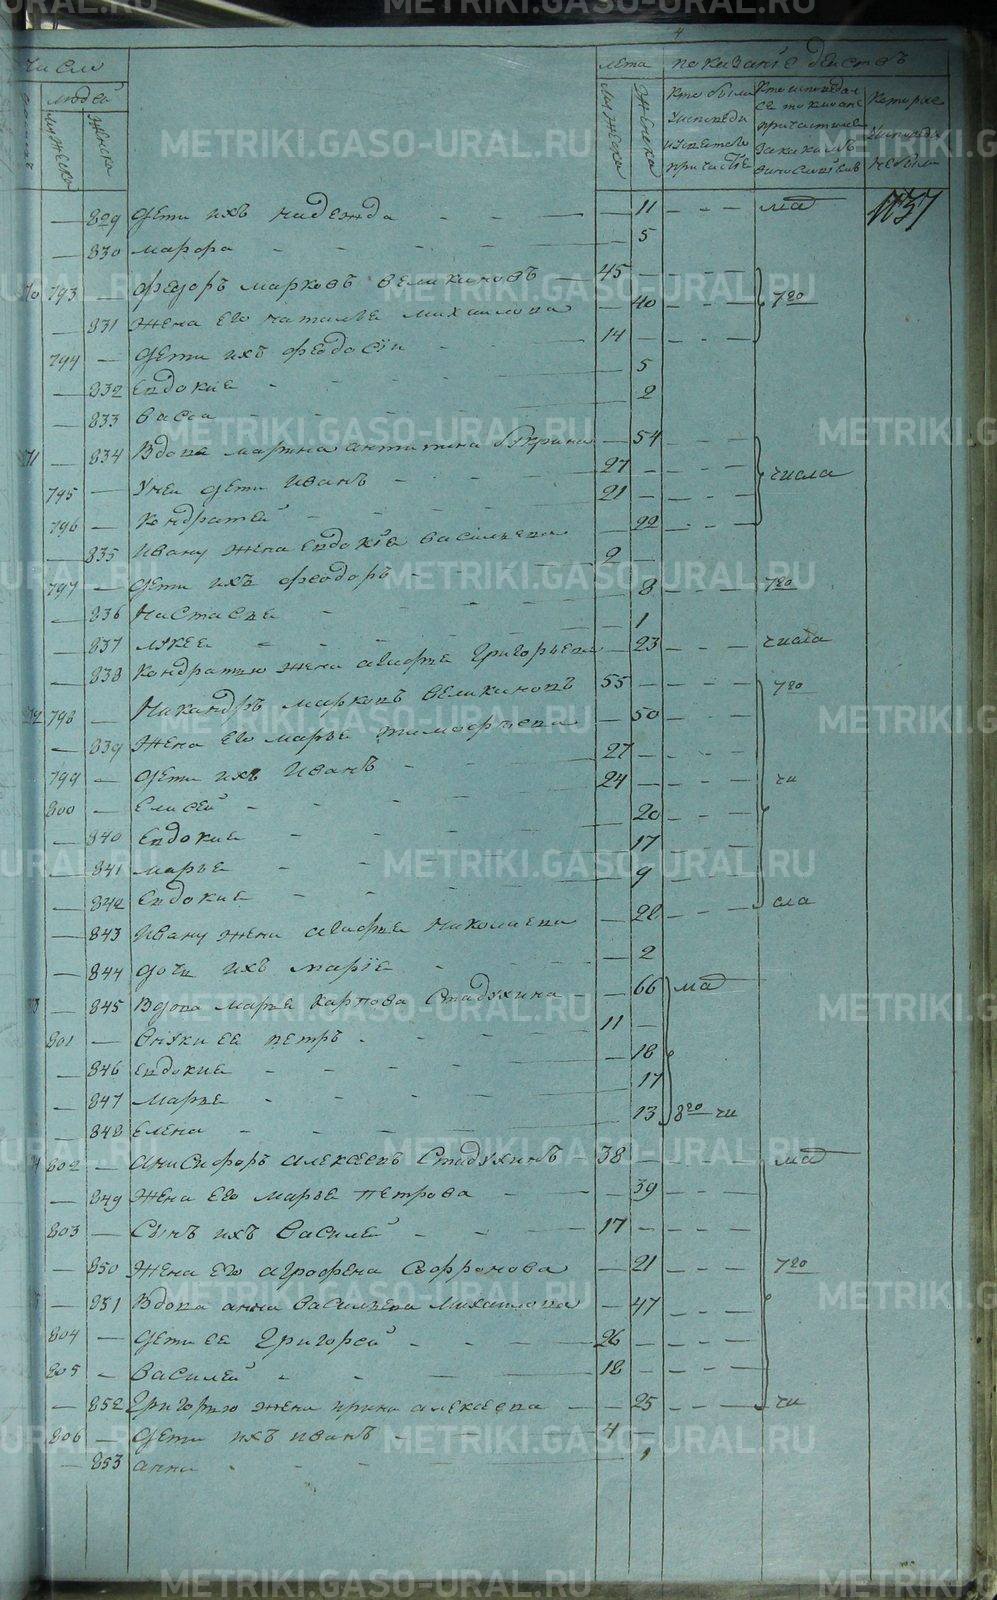 METRIKI.GASO-URAL.RU
4
Число лета показание действъ
людей
мужеска женска мужеска женска Кто были у исповеди и у святаго причастiе Которые у исповеди не были
829 дети ихъ надежда 11 ма 1137
830 мавра 5
70 793 федоръ марковъ великановъ 45
831 жена его наталье михаилова 40 7го
794 дети ихъ феодосiи 14
832 евдокие 5
833 васса 2
71 834 Вдова марина антипина 54
795 У нея дети иванъ 27 числа
796 кондратей 21
835 ивану жена евдокiе васильева 22
797 дети ихъ феодоръ 2
836 настасье 8 7го
837 1
838 кондратью жена агафье григорьева 23 числа
72 798 никандръ марковъ великановъ 55 7го
839 жена его марье тимофеева 50
799 дети ихъ иванъ 27
800 елисей 24 чи
840 евдокие 20
841 марье 17
842 евдокие 9
843 ивану жена агафье николаева 28 сла
844 дочь ихъ марiе 2
73 845 Вдова марье карпова стадухина 66 ма
801 внуки ее петръ 11
846 евдокие 18
847 марье 17
848 елена 13 8го чи
74 802 анисифоръ алексеевъ стадухинъ 38 ма
849 жена его марье петрова 39
803 сынъ ихъ василей 17
850 жена его агрофена софронова 21 7го
851 Вдова анна васильева михаилова 47
804 дети ее григорей 26
805 василей 18
852 григорью жена ирина алексеева 25 чи
806 дети ихъ иванъ 4
853 анна 1